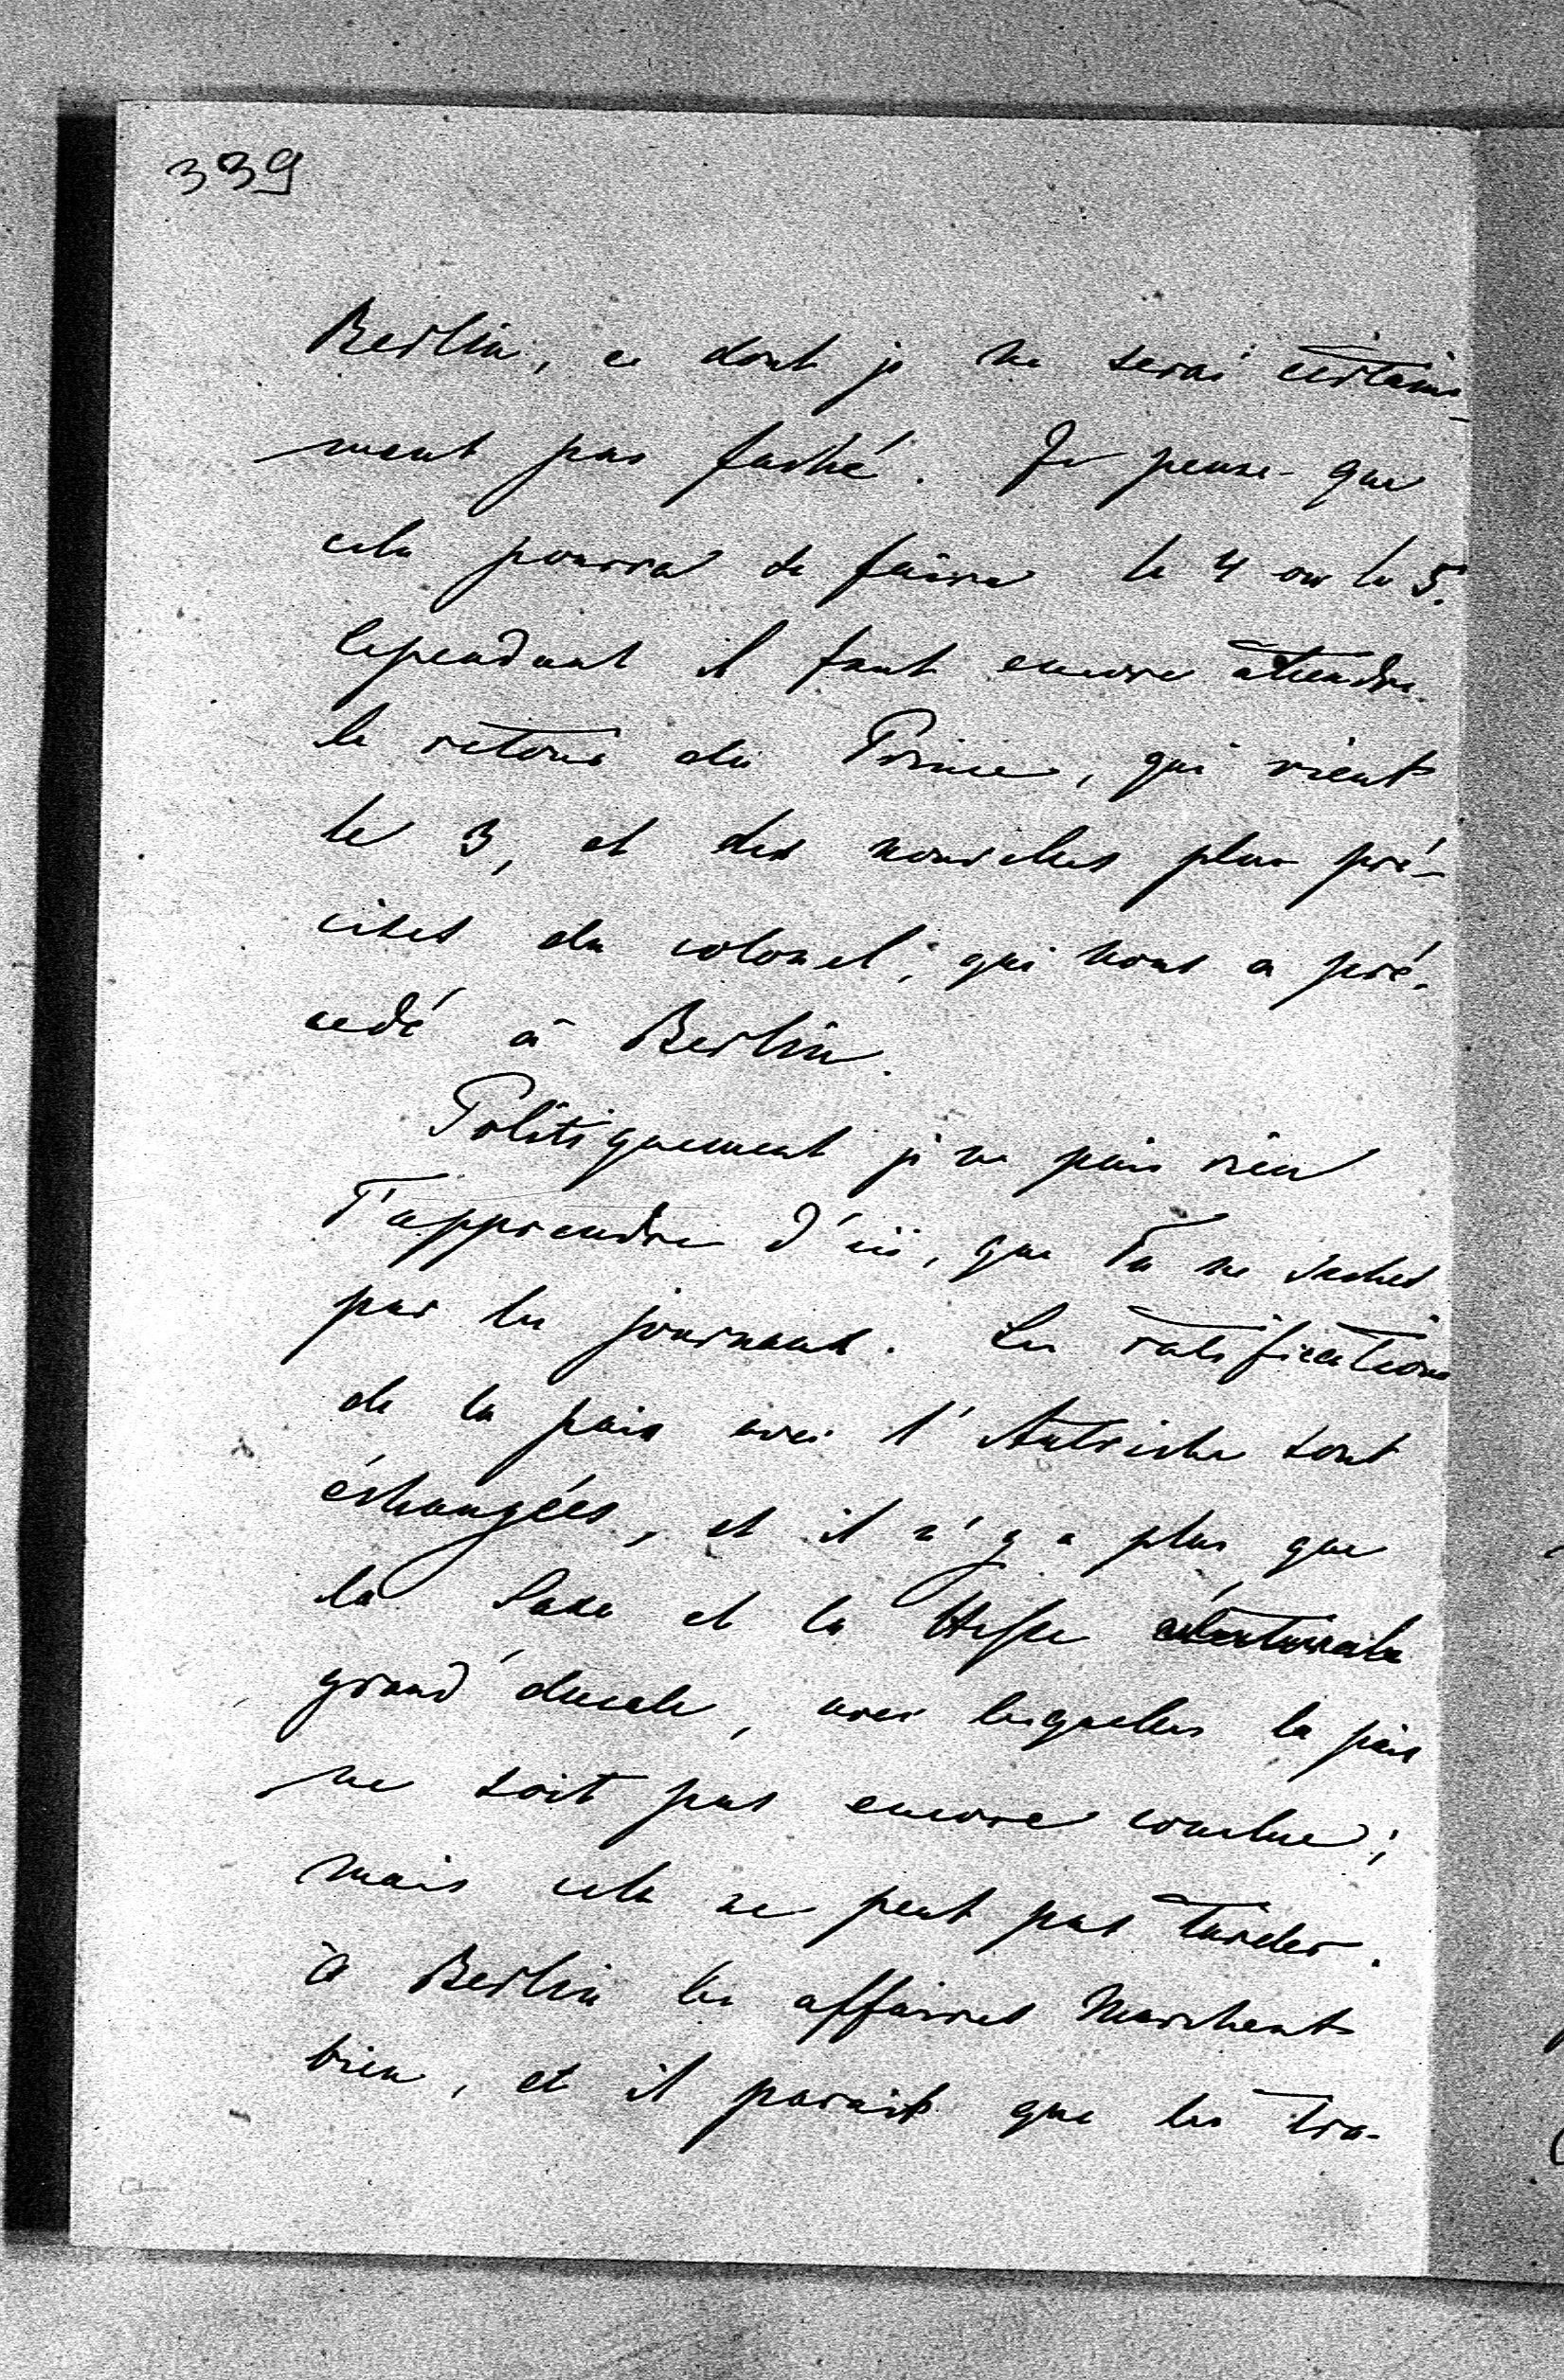 339
Berlin, ce dont je ne serai certaine-
ment pas faché. Je pense que
cela pourra se faire le 4 ou le 5.
Cependant il faut encore attendre
le retour du Prince, qui vient
le 3, et des nouvelles plus pré-
cises du colonel, qui nous a pré-
cedé à Berlin.
Politiquement je ne puis rien
T'apprendre d'ici, que Tu ne saches
par les journaux. Les ratifications
de la paix avec l'Autriche sont
échangées, et il n'y a plus que
la Saxe et la Hesse
grand'ducale, avec lesquelles la paix
ne soit pas encore conclue;
mais cela ne peut pas tarder.
à Berlin les affaires marchent
bien, et il parait que les tra-